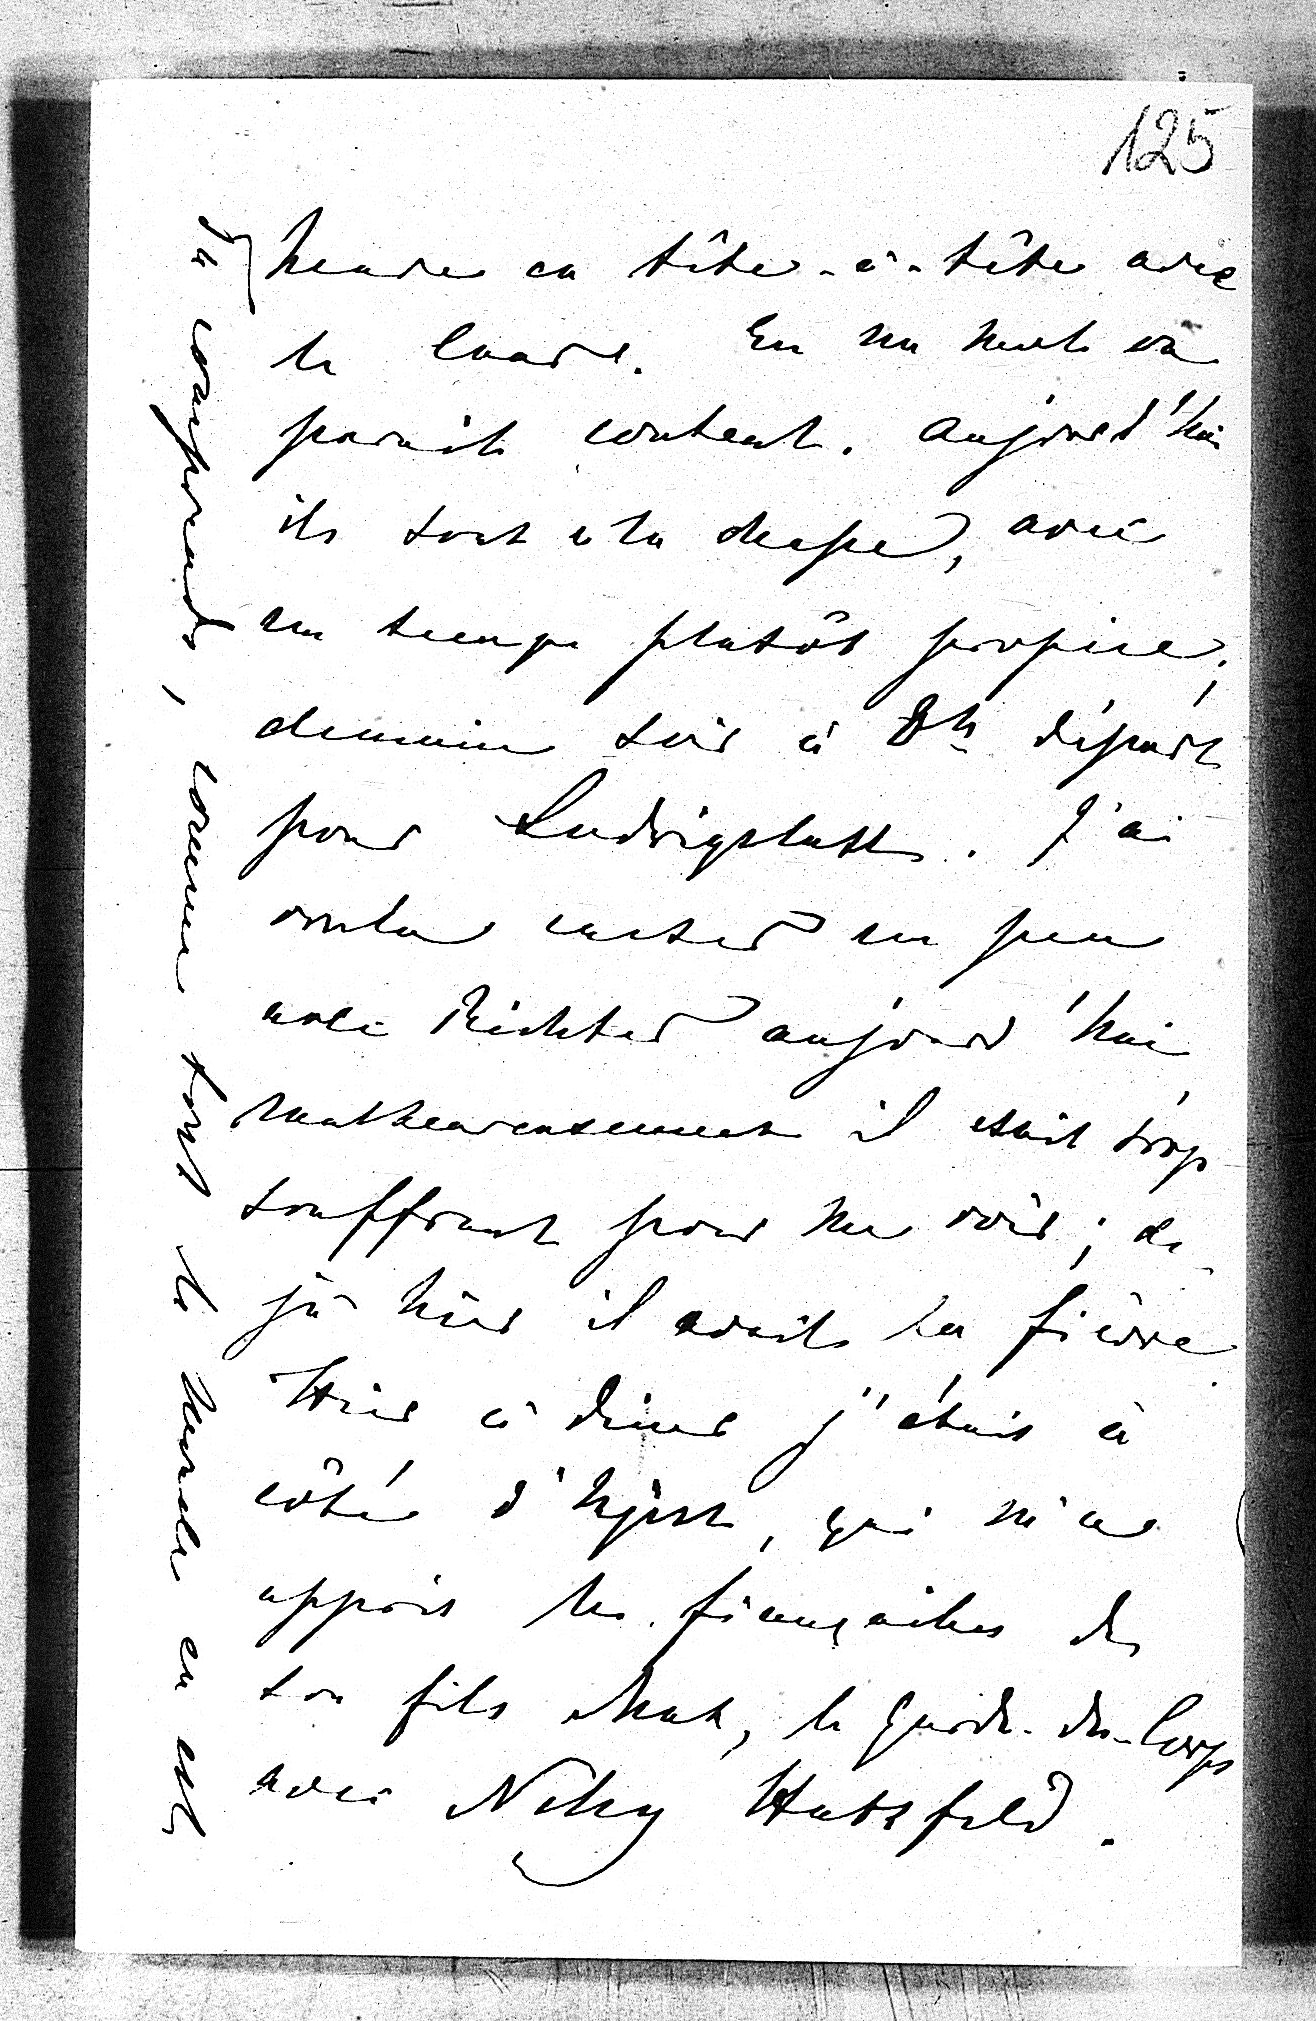 125
heure en tête-à-tête avec
le Czar. En un mot on
parait content. Aujourd'hui
ils sont à la chasse, avec
un temps plutôt propice;
demain soir à 8h départ
pour Ludwigslust. J'ai
voulu causer un peu
avec Richter aujourd'hui
malheureusement il était trop
souffrant pour me voir; de-
jà hier il avait la fièvre
Hier à diner j'étais à
côté d'Ujest, qui m'a
appris les fiançailles de
son fils Max, le Garde-du-Corps
avec Nelly Hatzfeld.
Tu comprends, comme tout le monde en est